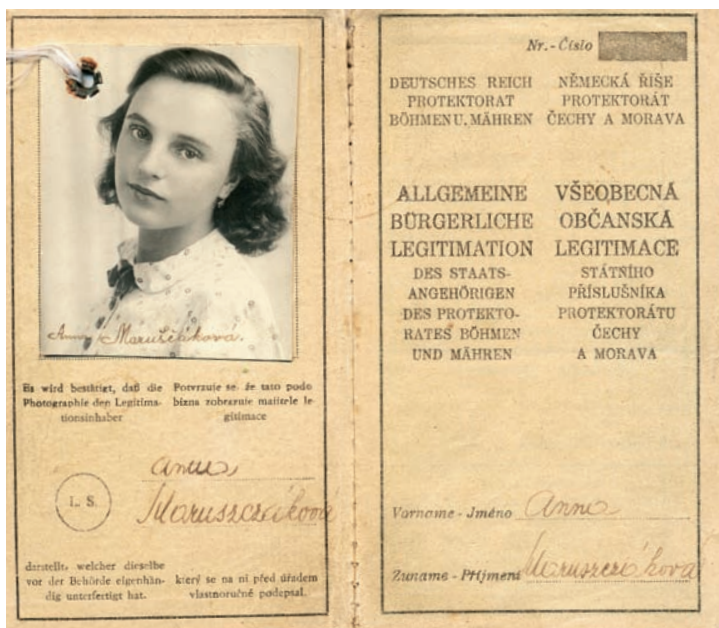 Anna Maruščáková.
Es wird bestätigt, daß die
Photographie den Legitima-
tionsinhaber
Potvrzuje se, že tato podo
bizna zobrazuje majitele le-
gitimace
Anna
Maruszczáková
L. S.
darstellt, welcher dieselbe
vor der Behörde eigenhän-
dig unterfertigt hat.
který se na ni před úřadem
vlastnoručně podepsal.
Nr. - Číslo
DEUTSCHES REICH
PROTEKTORAT
BÖHMEN U. MÄHREN
NĚMECKÁ ŘÍŠE
PROTEKTORÁT
ČECHY A MORAVA
ALLGEMEINE
BÜRGERLICHE
LEGITIMATION
DES STAATS-
ANGEHÖRIGEN
DES PROTEKTO-
RATES BÖHMEN
UND MÄHREN
VŠEOBECNÁ
OBČANSKÁ
LEGITIMACE
STÁTNÍHO
PŘÍSLUŠNÍKA
PROTEKTORÁTU
ČECHY
A MORAVA
Vorname - Jméno Anna
Zuname - Příjmení Maruszczáková